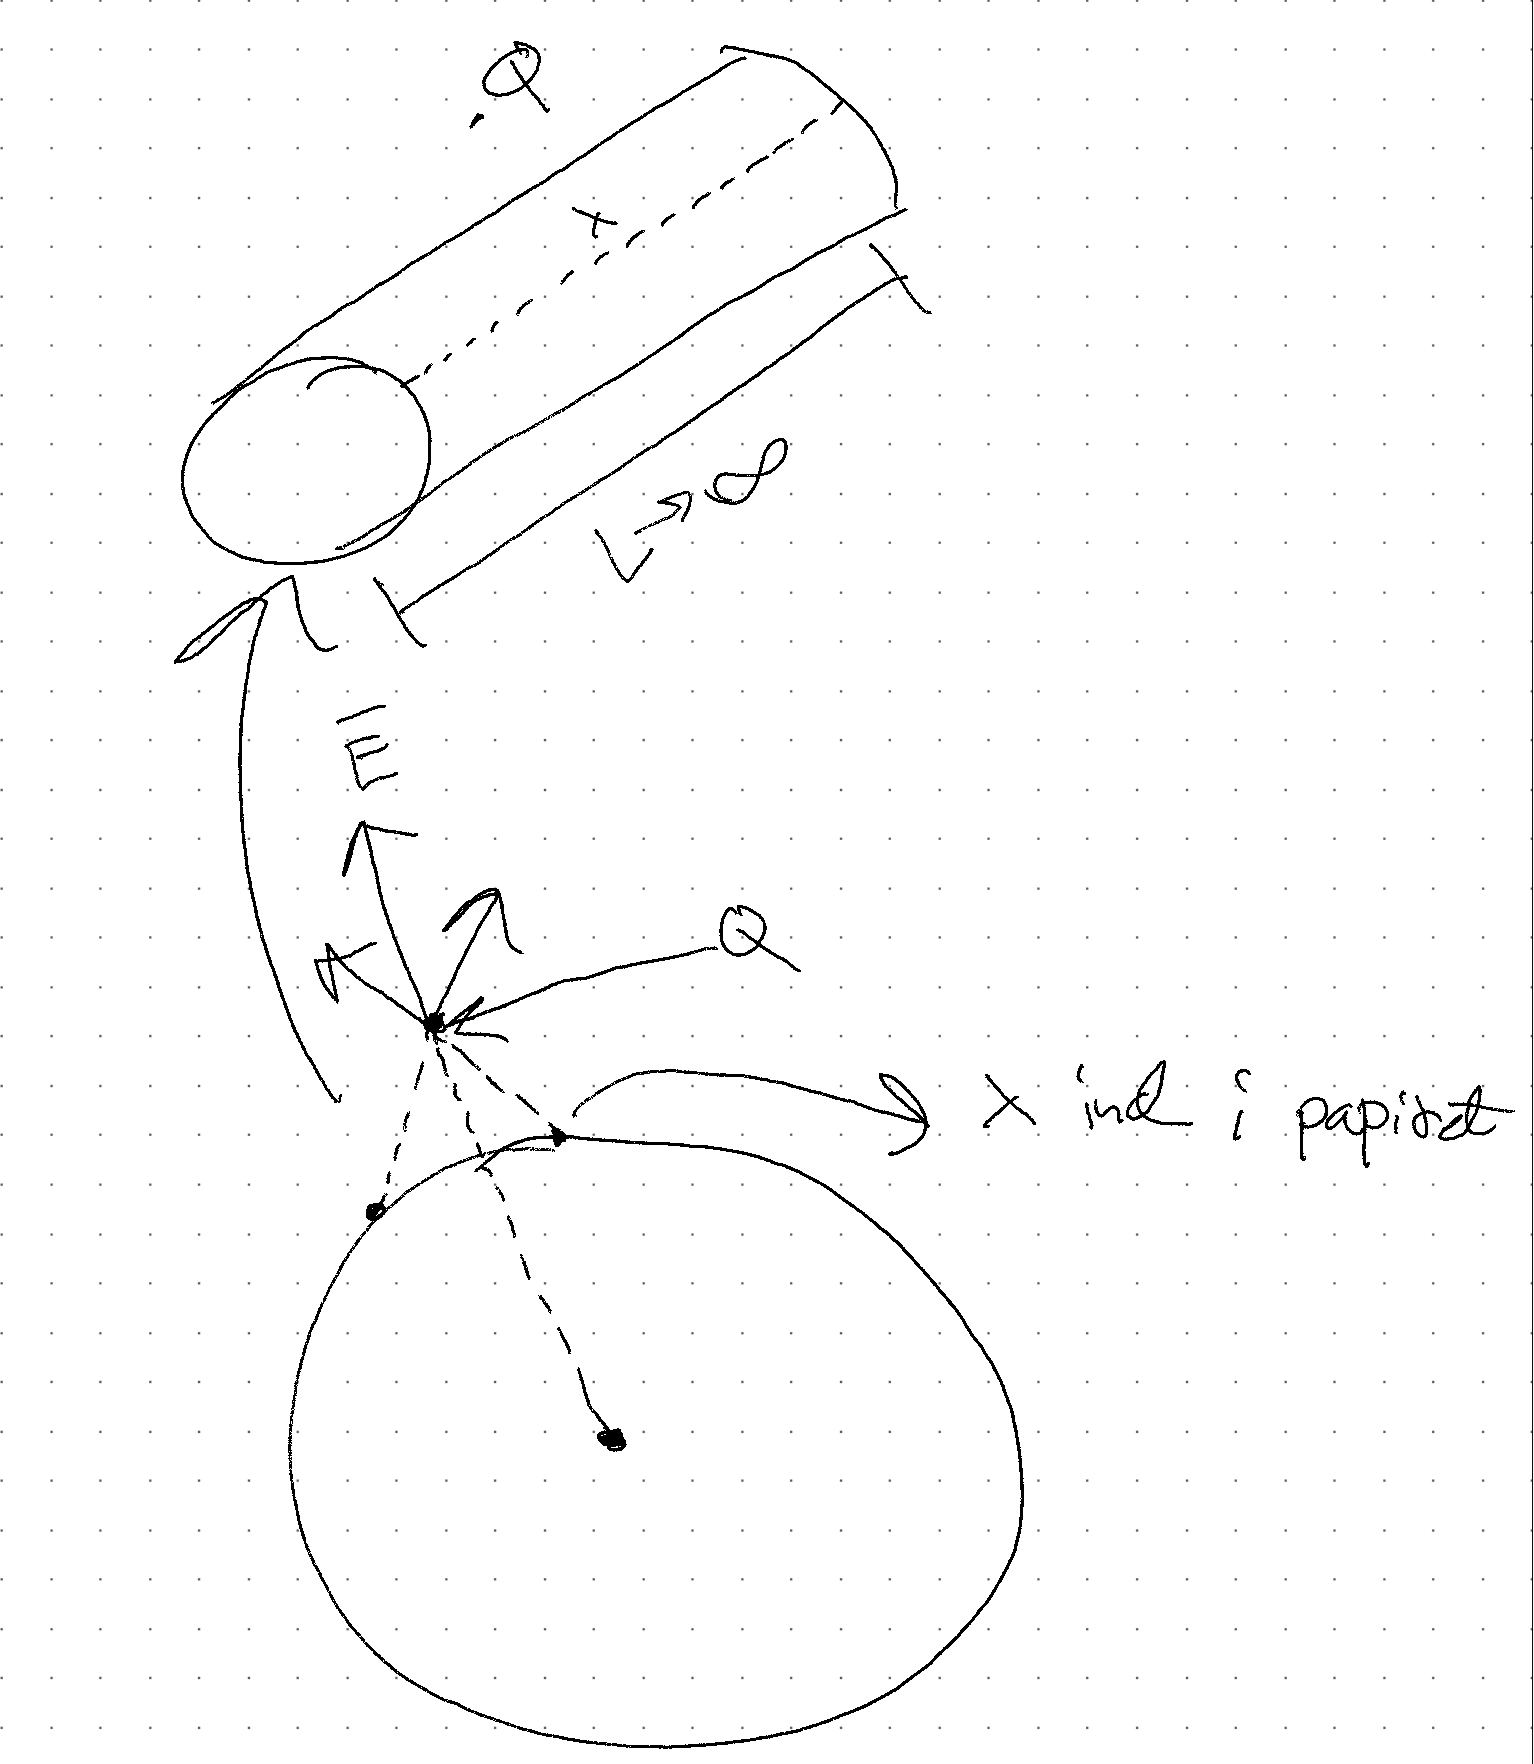 Q
x
L → ∞
E
Q
x ind i papiret